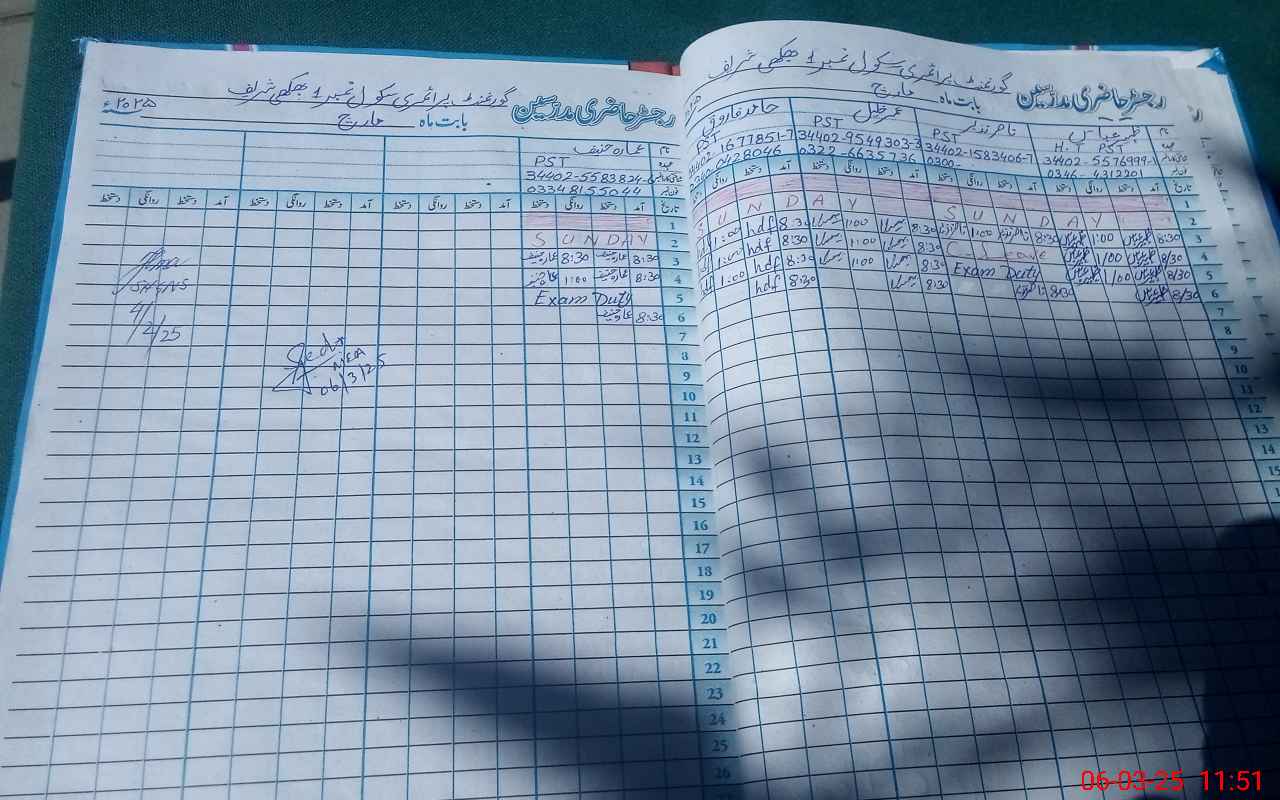 رجسٹر حاضری مدرسین
گورنمنٹ پرائمری سکول نمبر 1 بھکھی شریف
بابت ماہ مارچ
نام
ظہیر عباس
ناصر نذیر
عمر خلیل
حامد فاروق
H.T PST
PST
PST
PST
34402-5576999-
34402-1583406-7
34402-9549303-3
34402-1677851-7
0346-4312201
0300-
0322-6635736
0428046
تاریخ آمد دستخط روانگی دستخط آمد دستخط روانگی دستخط آمد دستخط روانگی دستخط آمد دستخط روانگی
1
2 SUNDAY SUNDAY
3 8:30 1:00 8:30 1:00 8:30 1:00 8:30 hdf 1:00
4 8/30 1/00 8:30 1:00 8:30 hdf 1:00
5 8/30 1/00 Exam Duty 8:30 1:00 8:30 hdf 1:00
6 8/30 8:30 8:30 8:30 hdf
7
8
9
10
11
12
13
14
15
رجسٹر حاضری مدرسین
گورنمنٹ پرائمری سکول نمبر 1 بھکھی شریف
بابت ماہ مارچ
۲۰۲۵ء
نام
عمارہ حنیف
PST
34402-5583824-6
03348155044
تاریخ آمد دستخط روانگی دستخط آمد دستخط روانگی دستخط آمد دستخط روانگی دستخط آمد دستخط روانگی دستخط
1
2 SUNDAY
3 8:30 عمارہ حنیف 8:30 عمارہ حنیف
4 8:30 عمارہ حنیف 1:00 عمارہ حنیف
5 Exam Duty
6 8:30 عمارہ حنیف
7
8
9
10
11
12
13
14
15
16
17
18
19
20
21
22
23
24
25
26
4/2/25
MEA
06/3/25
06-03-25 11:51